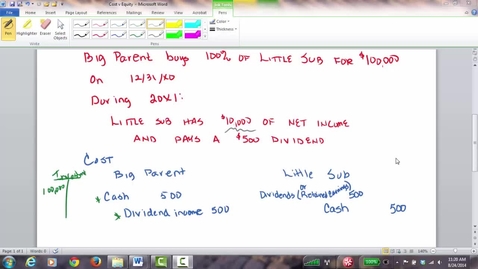 Cost v Equity - Microsoft Word
Pen Highlighter Eraser Select Objects
Pens
BIG PARENT buys 100% OF LITTLE SUB FOR $100,000
ON 12/31/X0
DURING 20X1:
LITTLE SUB HAS $10,000 OF NET INCOME
AND PAYS A $500 DIVIDEND
COST
BIG PARENT Little Sub
100,000
* Cash 500
Dividends (or Retained Earnings) 500
* Dividend income 500
Cash 500
Page: 1 of 1 Words: 0
100%
11:20 AM
8/24/2014